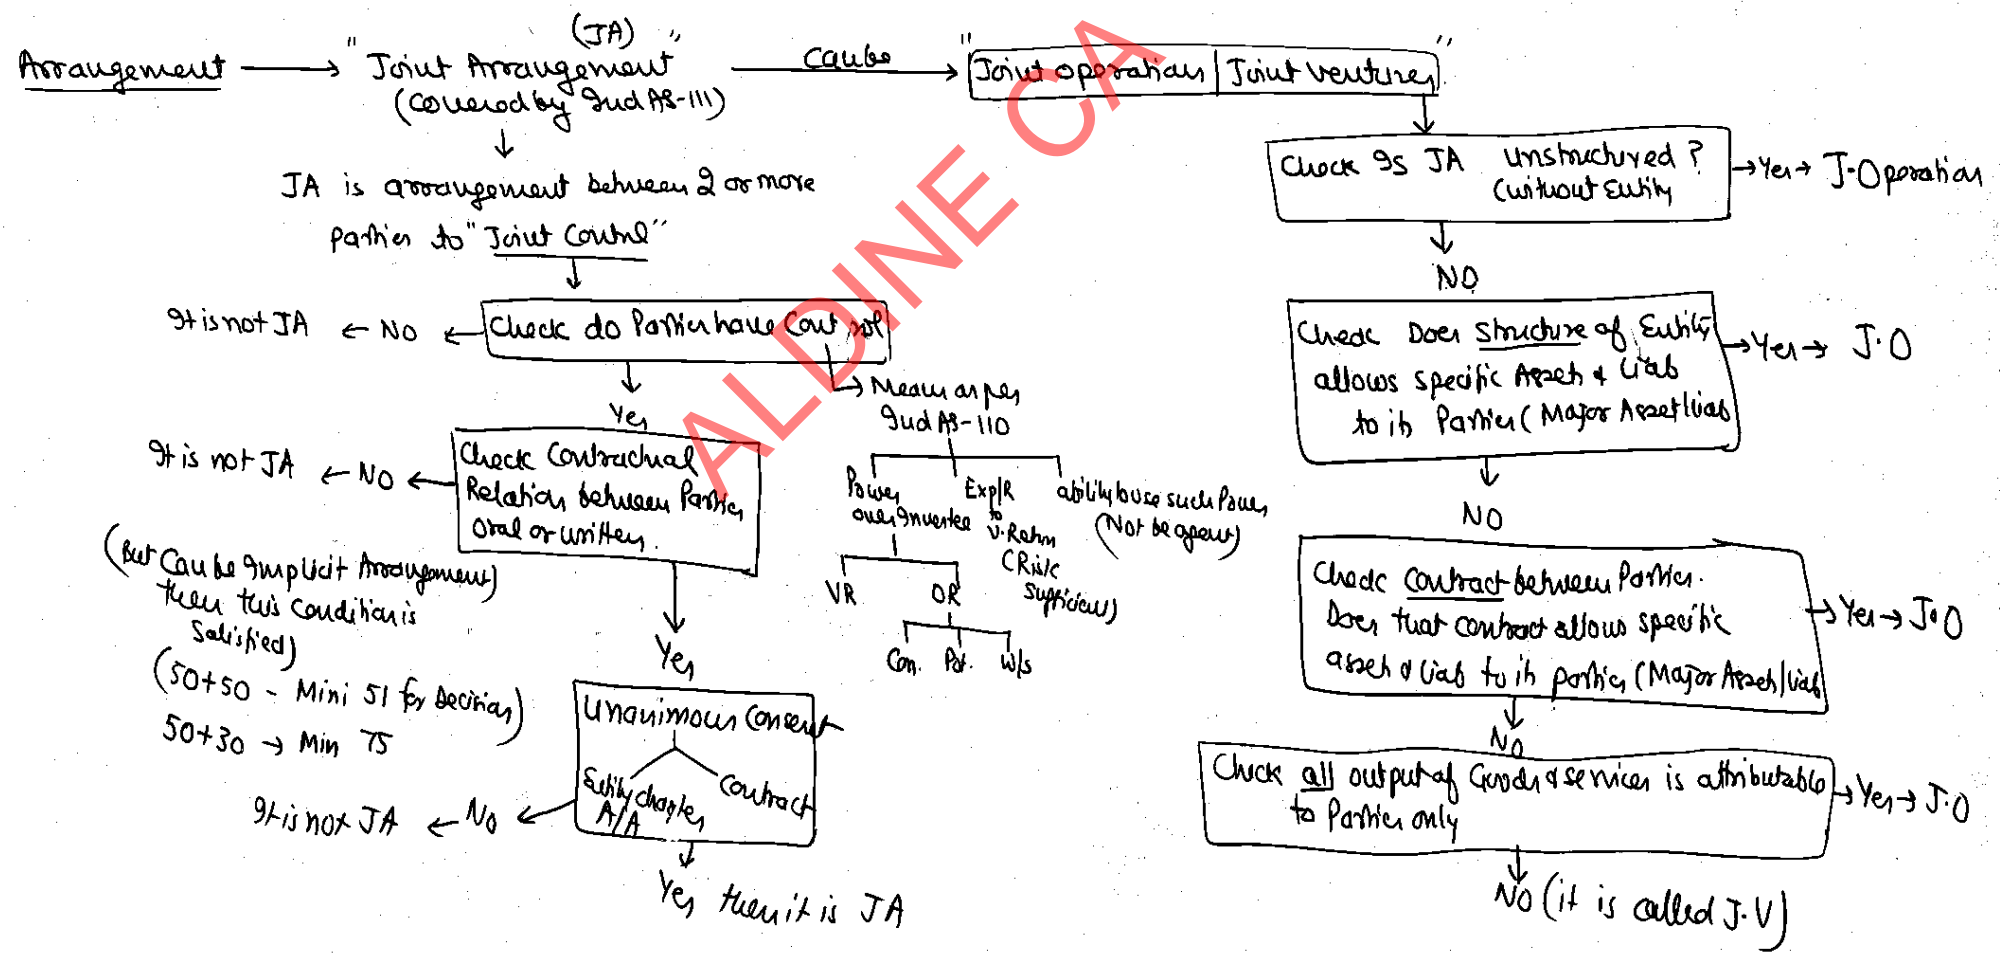 (JA)
Arrangement → "Joint Arrangement" → Can be → "Joint operations | Joint ventures"
(covered by Ind AS-111)
JA is arrangement between 2 or more
parties to "Joint Control"
Check do Parties have Control
It is not JA ← NO ←
Yes
→ Means as per
Ind AS-110
Power
over Investee
Exp/R
to
V. Return
(Risk
Sufficient)
ability to use such Power
(Not be agent)
VR
OR
Con. Pot. W/s
Check Contractual
Relation between Parties
oral or written.
It is not JA ← NO ←
(But Can be Implicit Arrangement)
then this condition is
satisfied)
(50+50 - Mini 51 for Decision)
50+30 → Min 75
Yes
Unanimous Consent
Entity charter
A/A
Contract
It is not JA ← No ←
Yes then it is JA
Check Is JA unstructured ?
(without Entity
→ Yes → J.Operation
NO
Check Does Structure of Entity
allows specific Assets & Liab
to its Parties (Major Asset/Liab
→ Yes → J.O
NO
Check Contract between Parties.
Does that contract allows specific
assets & Liab to its parties (Major Assets/Liab
→ Yes → J.O
NO
Check all output of Goods & services is attributable
to Parties only
→ Yes → J.O
NO (it is called J.V)
ALDINE CA